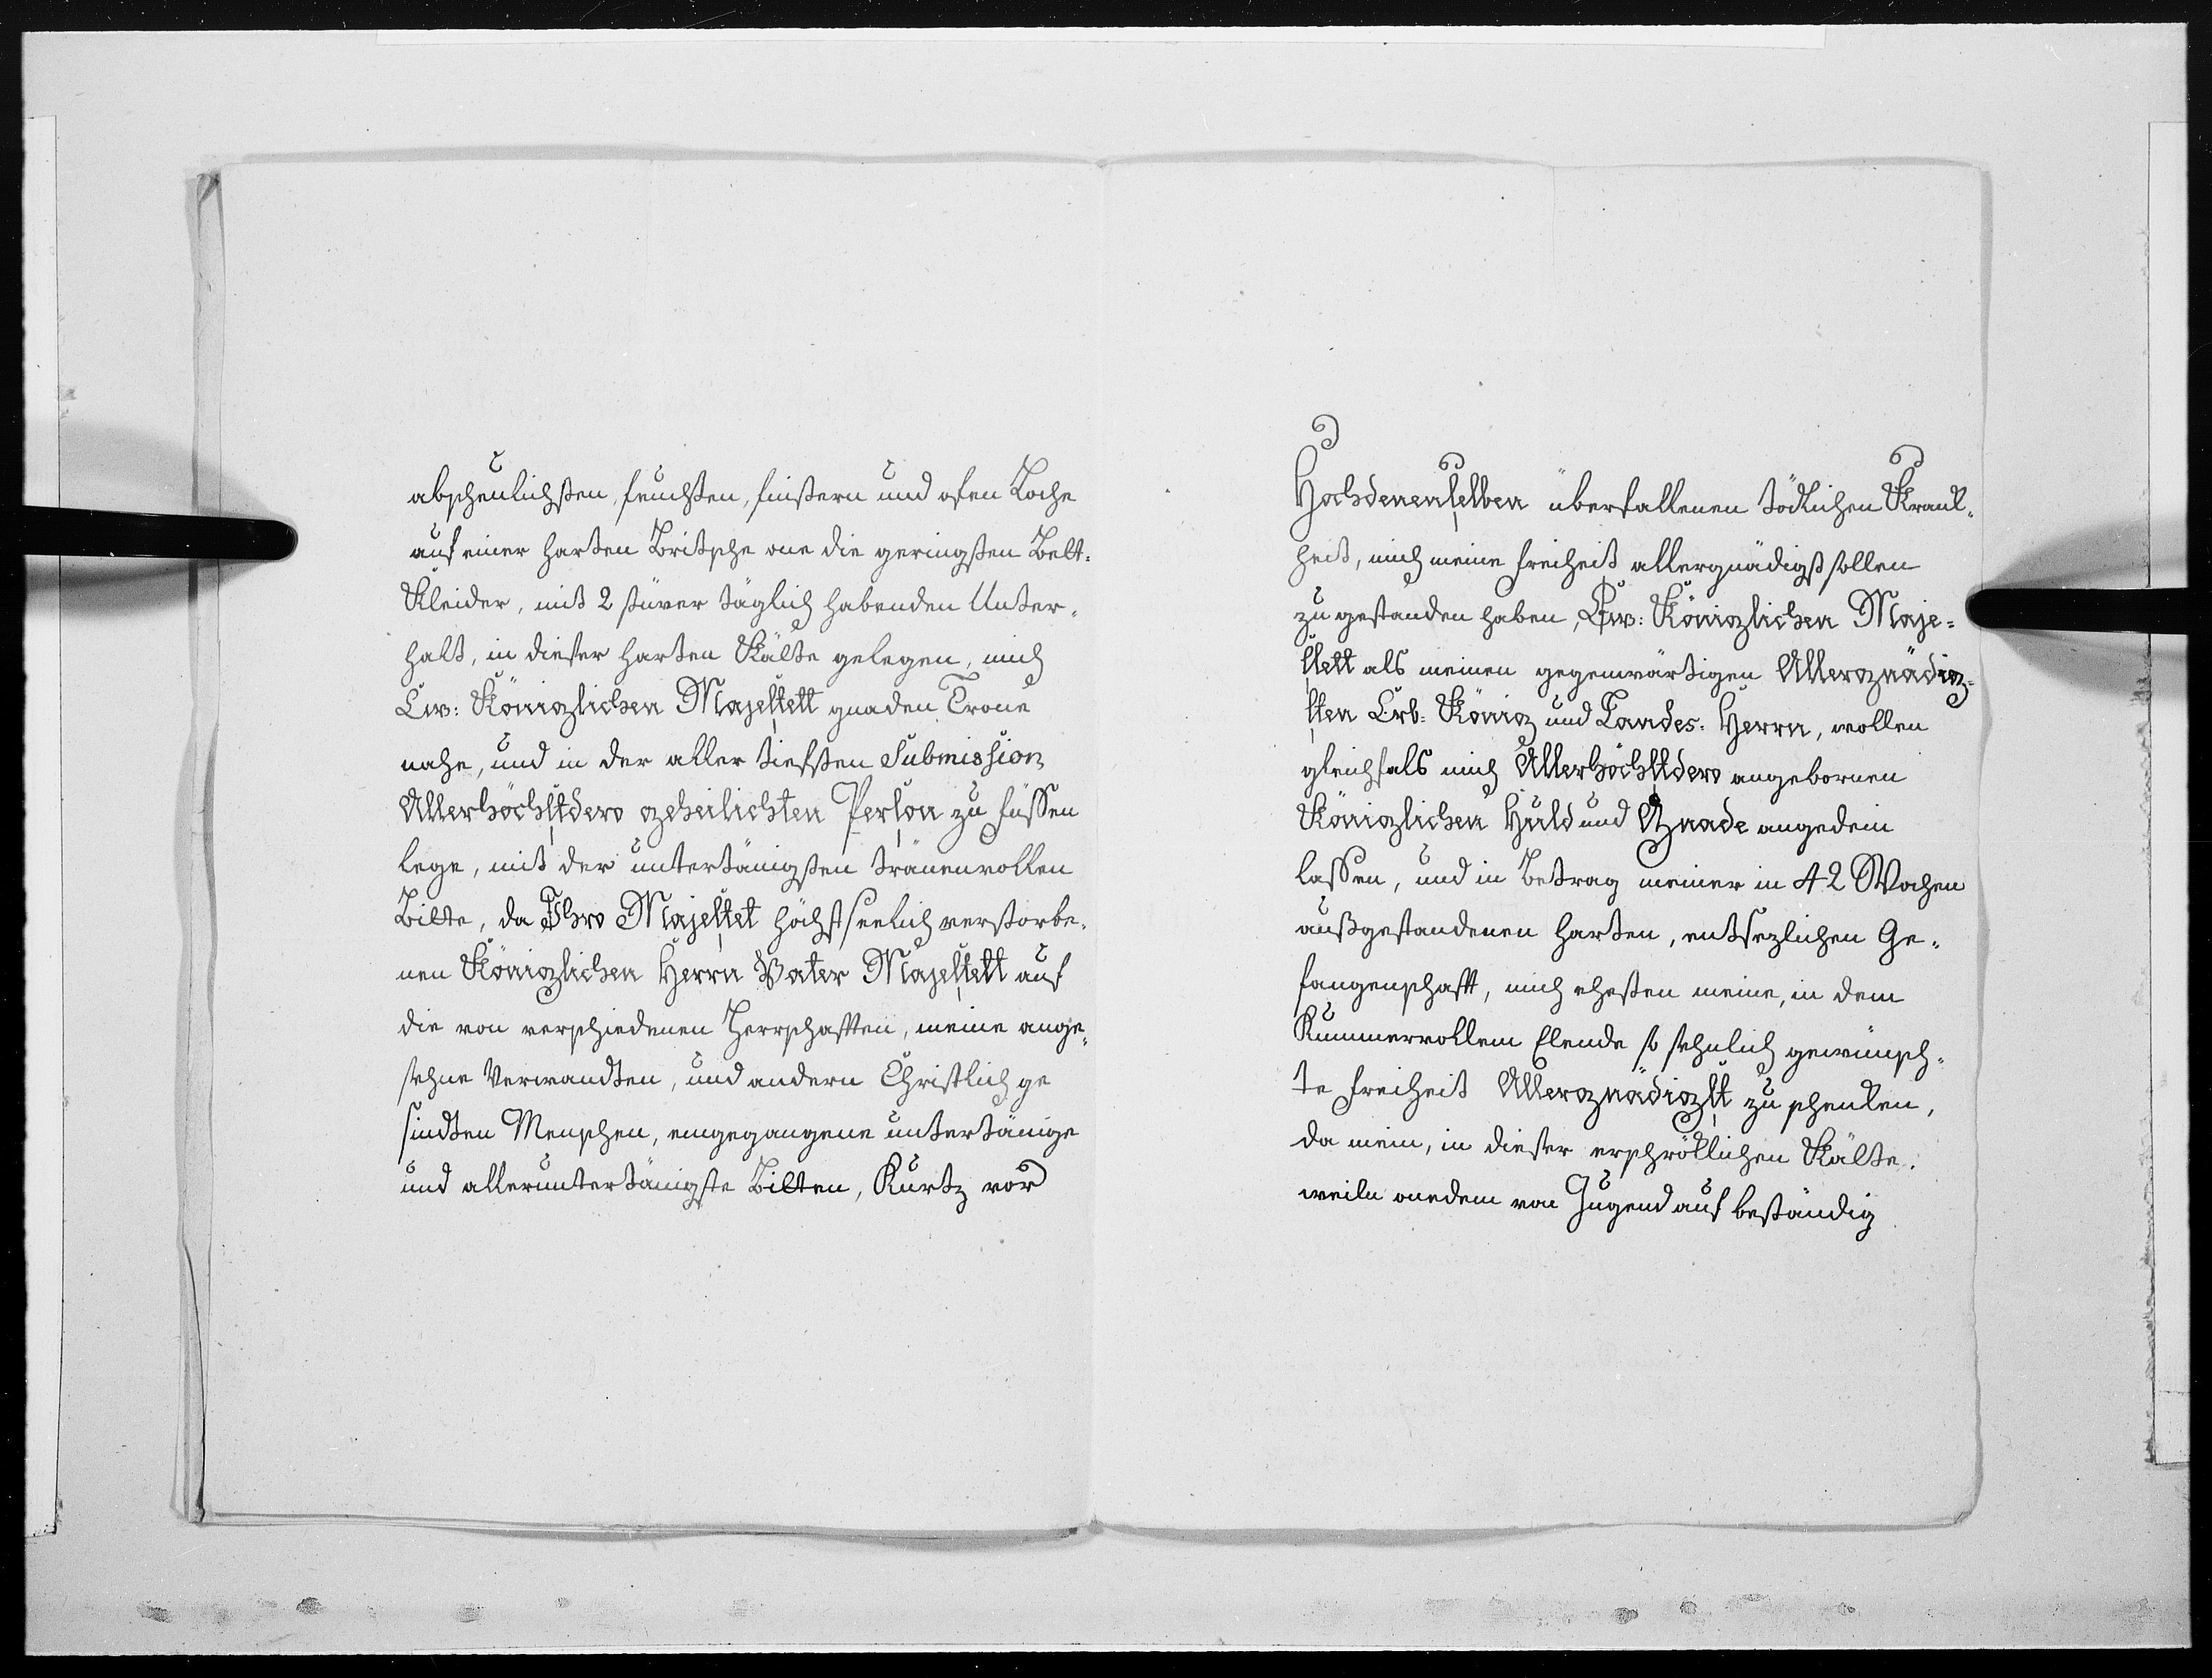 abscheulichsten, feuchten, finstern und ofen Loche
auf einer harten Britsche one die geringsten Bett-
Kleider, mit 2 stüver täglich habenden Unter-
halt, in dieser harten Kälte gelegen, mich
Ew: Königlichen Majestett gnaden Trone
nahe, und in der aller tiefsten Submission
Allerhöchstdero geheilichten Person zu füssen
lege, mit der untertänigsten tränenvollen
Bitte, da Ihro Majestet höchstseelich verstorbe-
nen Königlichen Herrn Vater Majestett auf
die von verschiedenen Herrschafften, meine ange-
sehne Verwandten, und andern Christlich ge
sindten Menschen, eingegangene untertänige
und alleruntertänigste Bitten, Kurtz vor
Hochdenenselben überfallenen tödlichen Krank-
heit, mich meine freiheit allergnädigst sollen
zu gestanden haben, Ew: Königlichen Maje-
stett als meinen gegenwärtigen Allergnädig-
sten Erb-König und Landes-Herrn, wollen
gleichfals mich Allerhöchstdero angebornen
Königlichen Huld und Gnade angedein
lassen, und in Betrag meiner in 42 Wochen
außgestandenen harten, entsezlichen Ge-
fangenschafft, mich ehesten meine, in dem
Kummervollem Elende so sehnlich gewünsch-
te freiheit Allergnädigst zu schenken,
da mein, in dieser erschröklichen Kälte.
weiln onedem von Jugend auf beständig